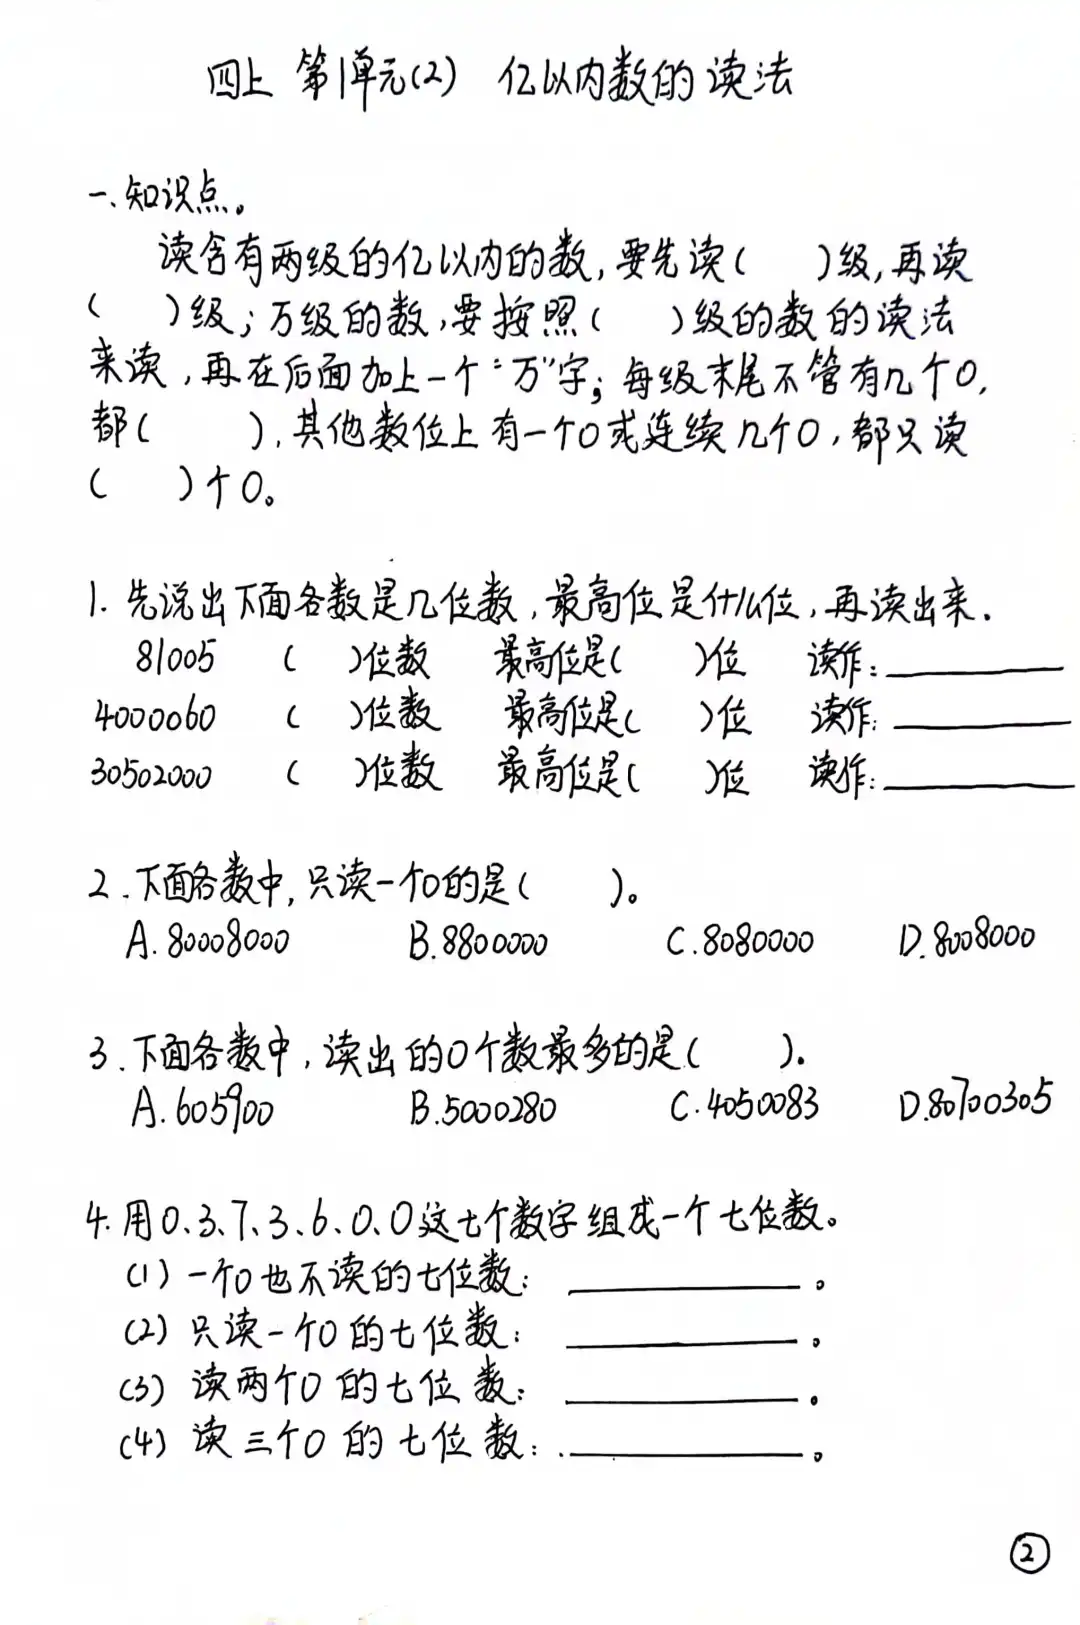 四上 第1单元(2) 亿以内数的读法
一、知识点。
读含有两级的亿以内的数,要先读( )级,再读
( )级;万级的数,要按照( )级的数的读法
来读,再在后面加上一个“万”字;每级末尾不管有几个0,
都( ),其他数位上有一个0或连续几个0,都只读
( )个0。
1. 先说出下面各数是几位数,最高位是什么位,再读出来.
81005 ( )位数 最高位是( )位 读作:________
4000060 ( )位数 最高位是( )位 读作:________
30502000 ( )位数 最高位是( )位 读作:________
2.下面各数中,只读一个0的是( )。
A.80008000 B.8800000 C.8080000 D.8008000
3.下面各数中,读出的0个数最多的是( ).
A.605900 B.5000280 C.4050083 D.80700305
4.用0、3、7、3、6、0、0这七个数字组成一个七位数。
(1)一个0也不读的七位数: ________。
(2)只读一个0的七位数: ________。
(3)读两个0的七位数: ________。
(4)读三个0的七位数: ________。
②